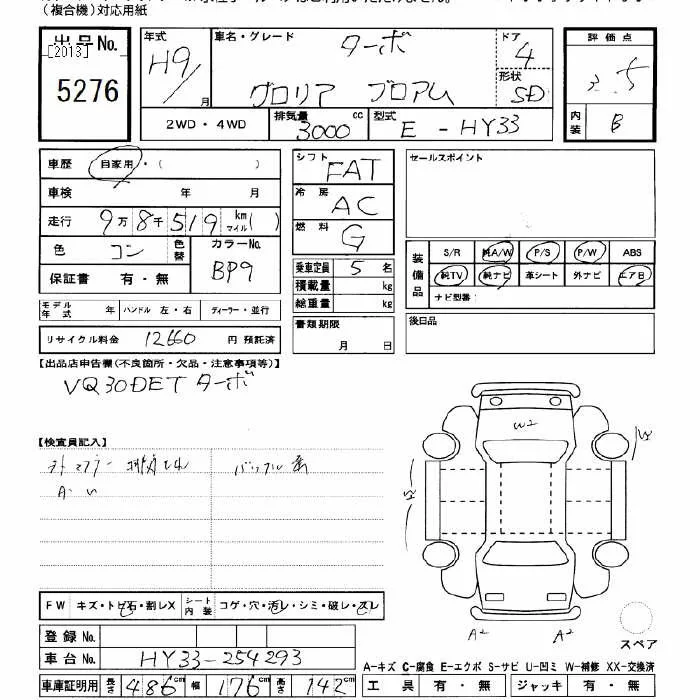 （複合機）対応用紙
出品No.
[2013]
5276
年式
H9/
月
車名・グレード
ターボ
グロリア ブロアム
ドア
4
形状
SD
2WD・4WD
排気量
3000
cc
型式
E-HY33
評価点
3.5
内装
B
車歴
自家用・（ ）
車検 年 月
走行 9万8千519 km マイル（ ）
色 コン
色替
カラーNo.
BP9
保証書 有・無
シフト
FAT
冷房
AC
燃料
G
乗車定員 5 名
積載量 kg
総重量 kg
書類期限
月 日
セールスポイント
装備品
S/R 純A/W P/S P/W ABS
純TV 純ナビ 革シート 外ナビ エアB
ナビ型番：
モデル年式 年 ハンドル 左・右 ディーラー・並行
リサイクル料金 12660 円 預託済
後日品
【出品店申告欄(不良箇所・欠品・注意事項等)】
VQ30DET ターボ
【検査員記入】
W2
A2 A2
FW キズ・トビ石・割レX
シート内装
コゲ・穴・汚レ・シミ・破レ・スレ
スペア
登録No.
車台No. HY33-254293
A-キズ C-腐食 E-エクボ S-サビ U-凹ミ W-補修 XX-交換済
車庫証明用 長さ 486 cm 幅 176 cm 高さ 142 cm
工具 有・無 ジャッキ 有・無